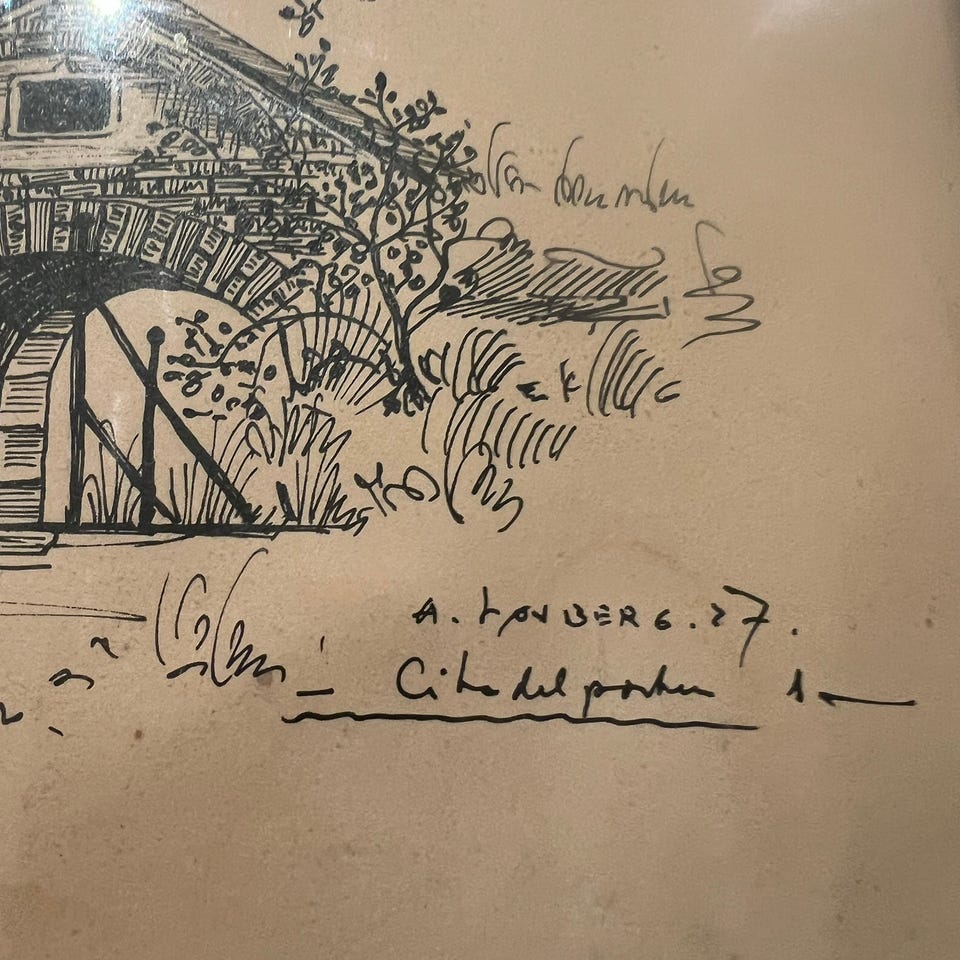 A. LAUBERG. 27.
Citadelporten 1